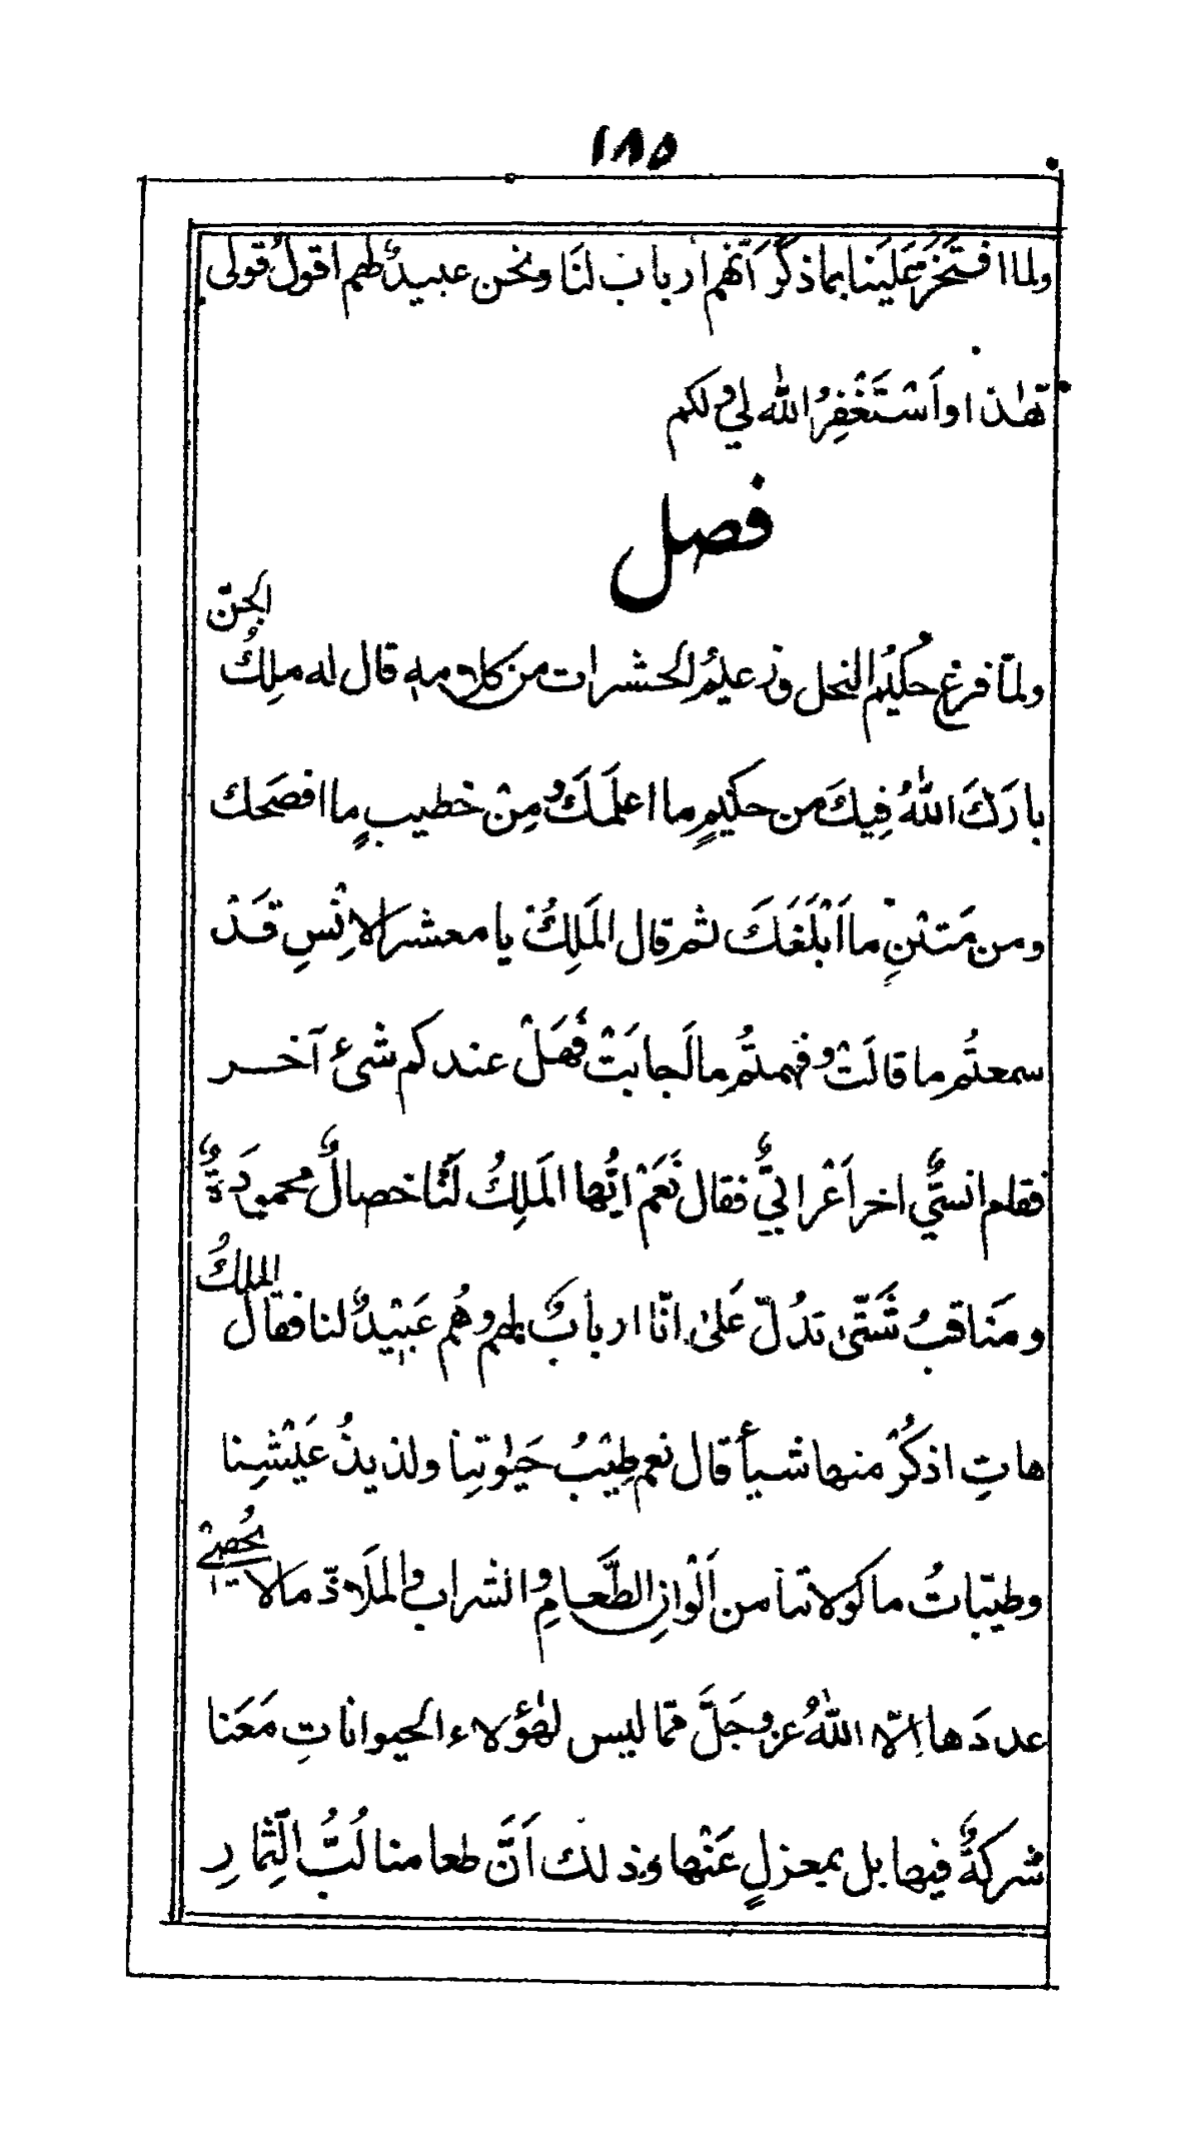 ١٨٥
ولما افتَخَرَ عَلَينا بما ذكَرَ اَنّهم ارباب لنَا ونحن عبيدٌ لهم اقولُ قولى
هٰذا واَسْتَغْفِرُ اللّٰه لي ولكم
فصل
ولمّا فرغ حكيْمُ النحل وزعيمُ الحشرات من كلامه قال له ملِكُ الجنّ
بارَكَ اللّٰهُ فِيكَ من حكيمٍ ما اعلَمَكَ ومِنْ خطيبٍ ما افصَحك
ومن مَتنٍ ما اَبْلَغَكَ ثم قال المَلِكُ يا معشر الانِسِ قَدْ
سمعتُم ما قالَتْ وفهمتُم ما اَجابَتْ فَهَلْ عندكم شئ آخر
فقام انسىٌّ اخر اَعْرابىٌّ فقال نَعَمْ ايّها المَلِكُ لَنَا خصالٌ محمودَةٌ
ومَناقبُ شَتّىٰ تدُلّ عَلىٰ انّا اربابٌ لهم وهُم عَبِيْدٌ لنا فقال الملكُ
هاتِ اذكُرْ منها شيأً قال نعم طِيْبُ حَيٰوتِنا ولذيذُ عَيْشِنا
وطيّباتُ ماكولاتنا من اَلْوانِ الطَّعامِ والشراب والملَاذّ مالا يُحصىٰ
عددَها اِلّا اللّٰهُ عز وجَلَّ ممّا ليس لهٰؤلاء الحيواناتِ مَعَنا
شركةٌ فيها بل بمعزلٍ عَنْها وذلك اَنَّ طعامنا لُبُّ الثِّمارِ